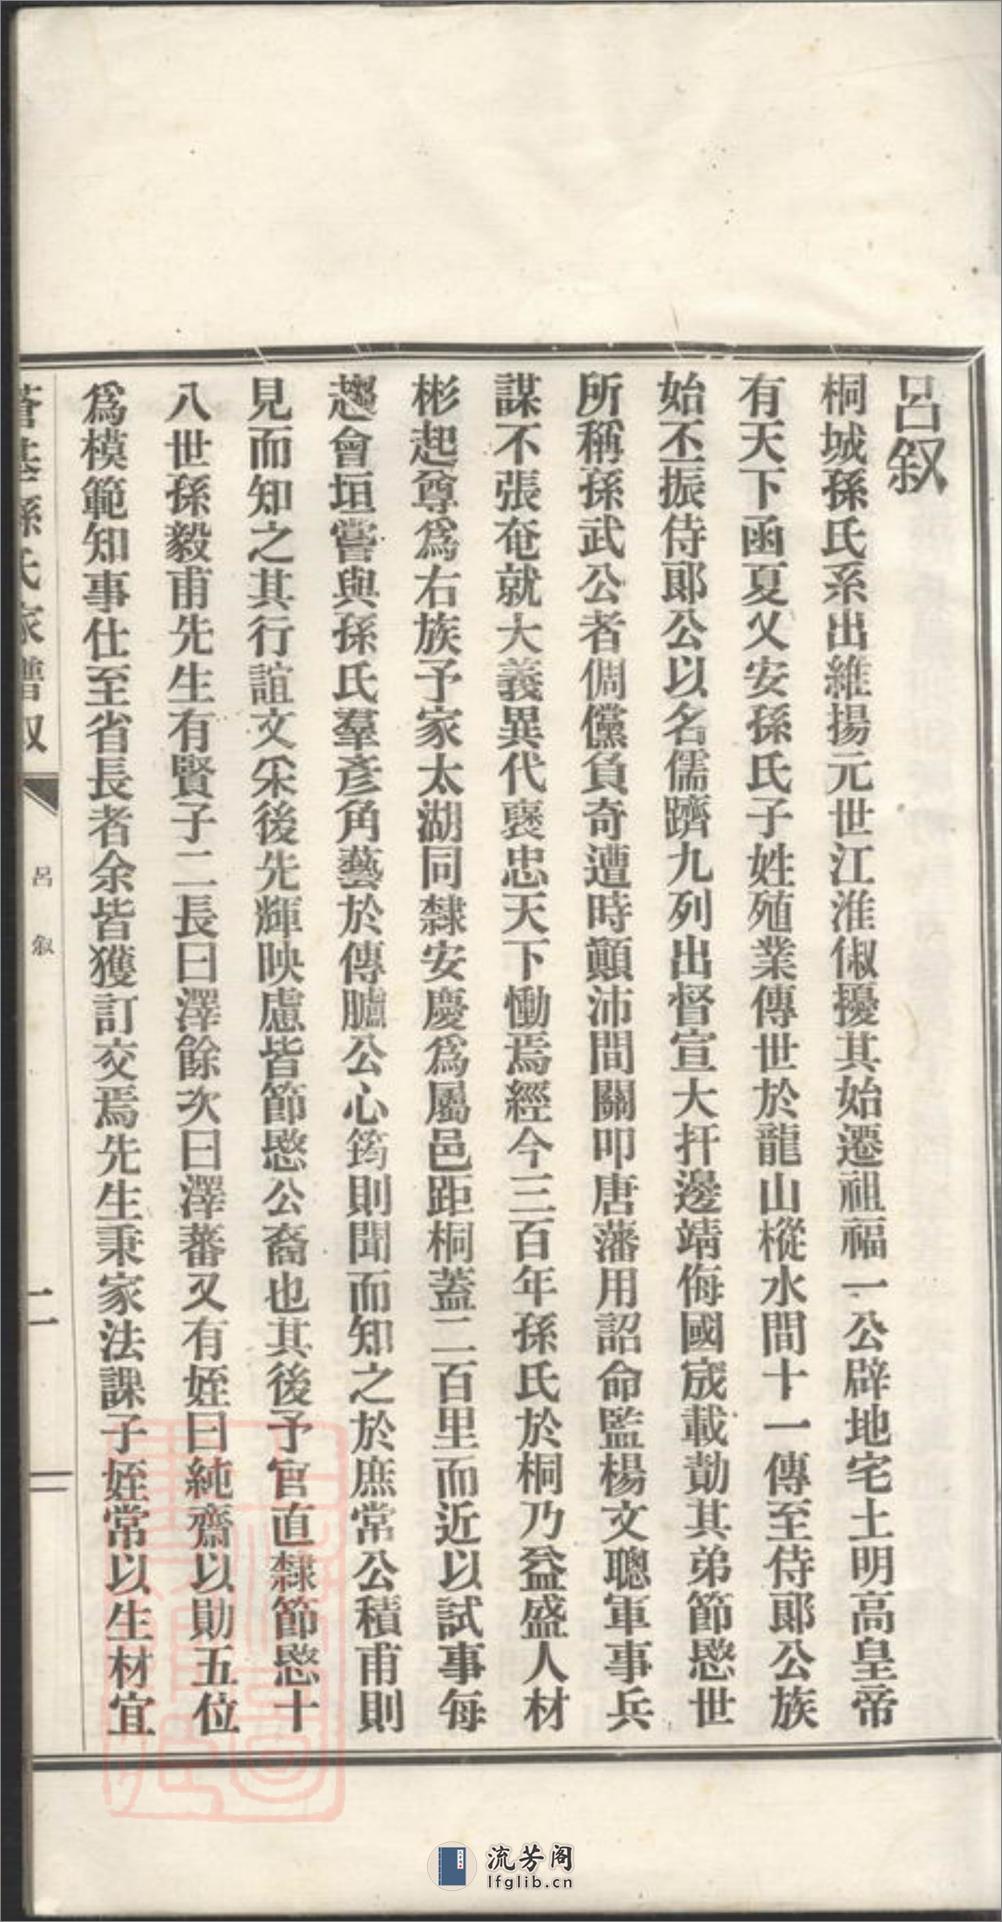 呂叙
桐城孫氏系出維揚元世江淮俶擾其始遷祖福一公辟地宅土明高皇帝
有天下函夏乂安孫氏子姓殖業傳世於龍山樅水間十一傳至侍郎公族
始丕振侍郎公以名儒躋九列出督宣大扞邊靖侮國宬載勣其弟節愍世
所稱孫武公者倜儻負奇遭時顚沛間關叩唐藩用詔命監楊文聰軍事兵
謀不張奄就大義異代襃忠天下慟焉經今三百年孫氏於桐乃益盛人材
彬起尊爲右族予家太湖同隸安慶爲屬邑距桐蓋二百里而近以試事每
趨會垣嘗與孫氏羣彥角藝於傳臚公心筠則聞而知之於庶常公積甫則
見而知之其行誼文采後先輝映慮皆節愍公裔也其後予官直隸節愍十
八世孫毅甫先生有賢子二長曰澤餘次曰澤蕃又有姪曰純齋以勛五位
爲模範知事仕至省長者余皆獲訂交焉先生秉家法課子姪常以生材宜
孫氏家譜叙
呂叙
二
流芳阁
lfglib.cn